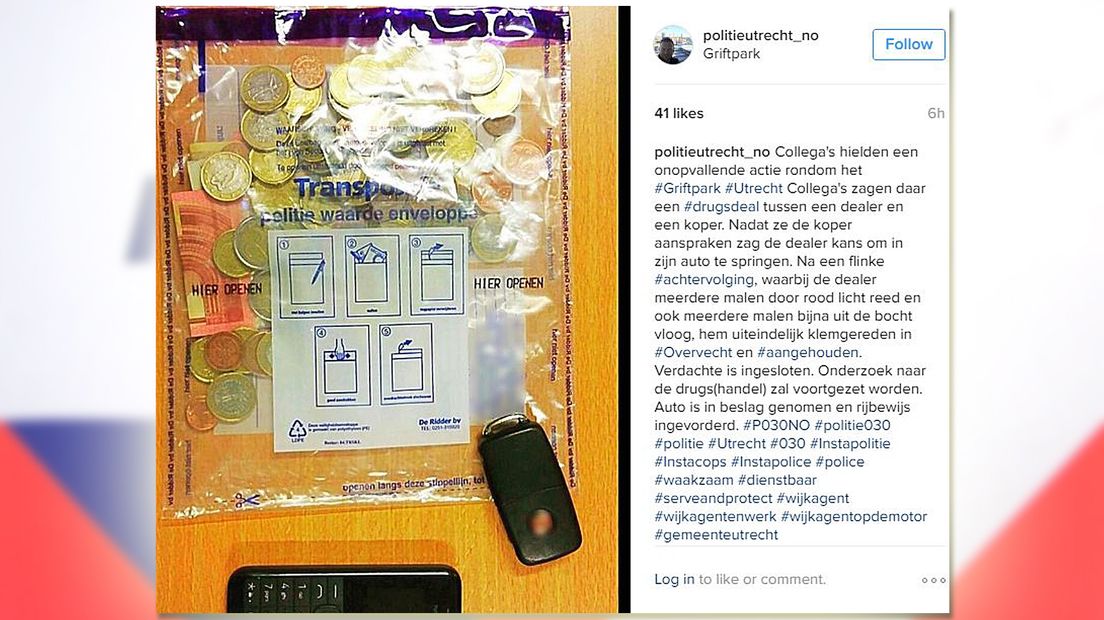 WAARSCHUWING
Transpo
politie waarde enveloppe
1
2
3
HIER OPENEN
HIER OPENEN
4
5
De Ridder bv
LDPE
openen langs deze stippellijn, tot
politieutrecht_no
Griftpark
Follow
41 likes
6h
politieutrecht_no Collega's hielden een
onopvallende actie rondom het
#Griftpark #Utrecht Collega's zagen daar
een #drugsdeal tussen een dealer en
een koper. Nadat ze de koper
aanspraken zag de dealer kans om in
zijn auto te springen. Na een flinke
#achtervolging, waarbij de dealer
meerdere malen door rood licht reed en
ook meerdere malen bijna uit de bocht
vloog, hem uiteindelijk klemgereden in
#Overvecht en #aangehouden.
Verdachte is ingesloten. Onderzoek naar
de drugs(handel) zal voortgezet worden.
Auto is in beslag genomen en rijbewijs
ingevorderd. #P030NO #politie030
#politie #Utrecht #030 #Instapolitie
#Instacops #Instapolice #police
#waakzaam #dienstbaar
#serveandprotect #wijkagent
#wijkagentenwerk #wijkagentopdemotor
#gemeenteutrecht
Log in to like or comment.